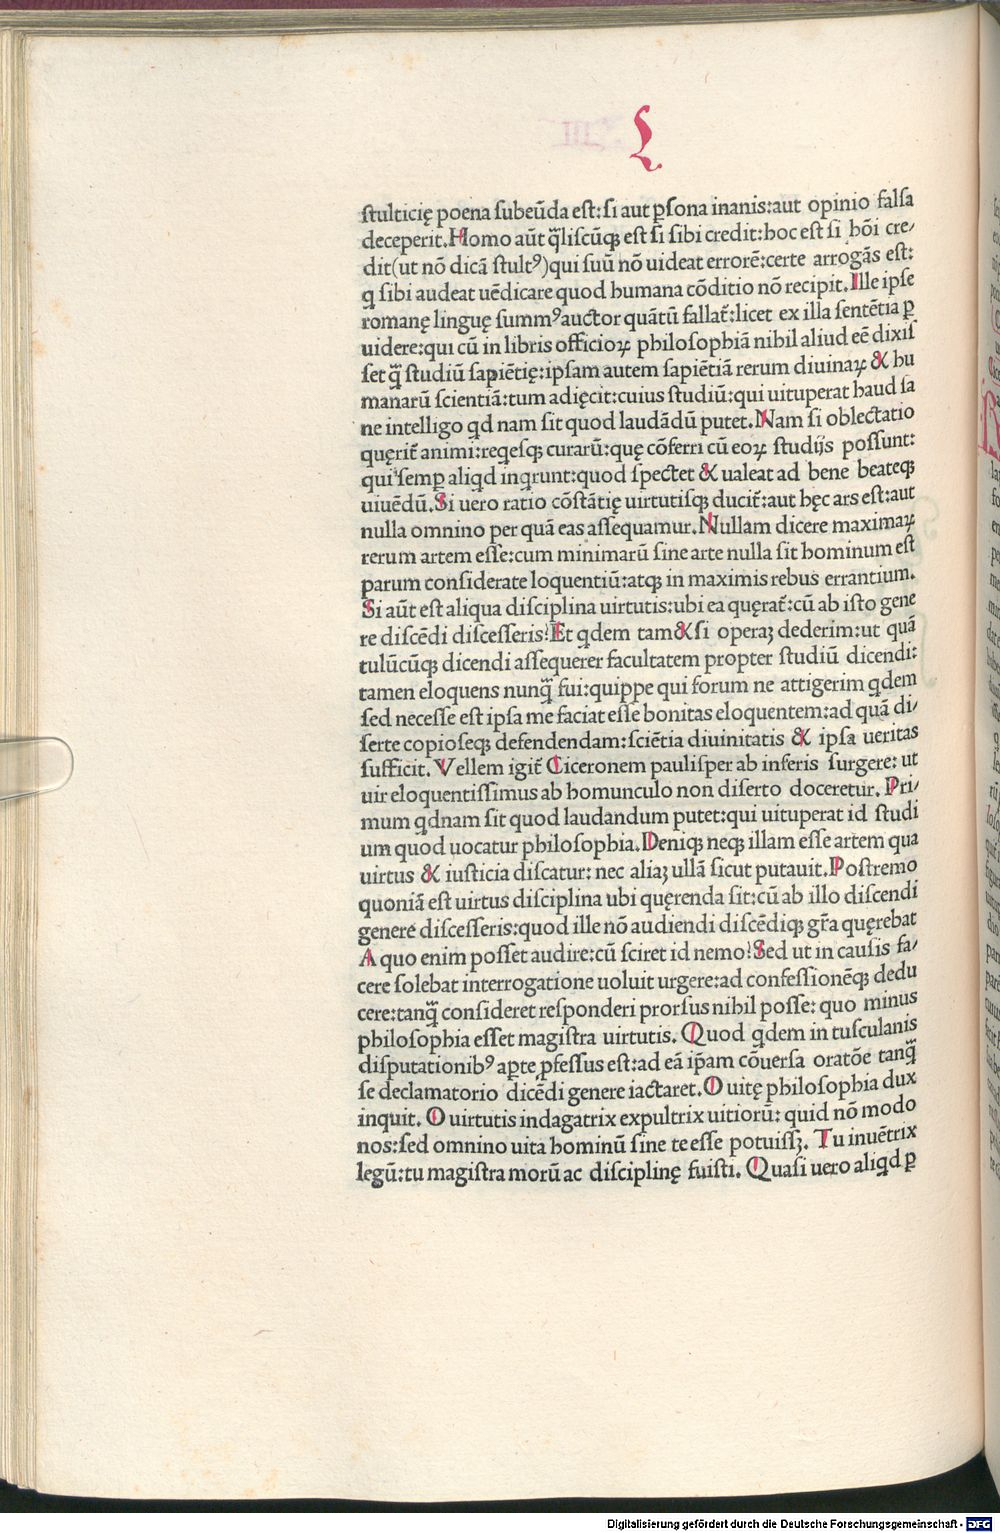 L
ſtulticię poena ſubeūda eſt: ſi aut ꝑſona inanis: aut opinio falſa
deceperit. Homo aūt q̄liſcūꝗ eſt ſi ſibi credit: hoc eſt ſi hōi cre/
dit (ut nō dicā ſtultꝰ) qui ſuū nō uideat errorē: certe arrogās eſt:
q ſibi audeat uēdicare quod humana cōditio nō recipit. Ille ipſe
romanę linguę ſummꝰ auctor quātū fallat̄: licet ex illa ſentētia ꝑ
uidere: qui cū in libris officioꝝ philoſophiā nihil aliud eē dixiſ
ſet q̄ ſtudiū ſapiētię: ipſam autem ſapiētiā rerum diuinaꝝ & hu
manarū ſcientiā: tum adięcit: cuius ſtudiū: qui uituperat haud ſa
ne intelligo qd nam ſit quod laudādū putet. Nam ſi oblectatio
quęrit̄ animi: reqeſꝗ curarū: quę cōferri cū eoꝝ ſtudijs poſſunt:
qui ſemꝑ aliqd inqrunt: quod ſpectet & ualeat ad bene beateꝗ
uiuēdū. Si uero ratio cōſtātię uirtutiſꝗ ducit̄: aut hęc ars eſt: aut
nulla omnino per quā eas aſſequamur. Nullam dicere maximaꝝ
rerum artem eſſe: cum minimarū ſine arte nulla ſit hominum eſt
parum conſiderate loquentiū: atꝗ in maximis rebus errantium.
Si aūt eſt aliqua diſciplina uirtutis: ubi ea quęrat̄: cū ab iſto gene
re diſcēdi diſceſſeris? Et qdem tam & ſi operaꝫ dederim: ut quā
tulūcūꝗ dicendi aſſequerer facultatem propter ſtudiū dicendi:
tamen eloquens nunq̄ fui: quippe qui forum ne attigerim qdem
ſed neceſſe eſt ipſa me faciat eſſe bonitas eloquentem: ad quā di/
ſerte copioſeꝗ defendendam: ſciētia diuinitatis & ipſa ueritas
ſufficit. Vellem igit̄ Ciceronem pauliſper ab inferis ſurgere: ut
uir eloquentiſſimus ab homunculo non diſerto doceretur. Pri/
mum qdnam ſit quod laudandum putet: qui uituperat id ſtudi
um quod uocatur philoſophia. Deniꝗ neꝗ illam eſſe artem qua
uirtus & iuſticia diſcatur: nec aliaꝫ ullā ſicut putauit. Poſtremo
quoniā eſt uirtus diſciplina ubi quęrenda ſit: cū ab illo diſcendi
genere diſceſſeris: quod ille nō audiendi diſcēdiꝗ gr̄a quęrebat
A quo enim poſſet audire: cū ſciret id nemo? Sed ut in cauſis fa/
cere ſolebat interrogatione uoluit urgere: ad confeſſionēꝗ dedu
cere: tanq̄ conſideret reſponderi prorſus nihil poſſe: quo minus
philoſophia eſſet magiſtra uirtutis. Quod qdem in tuſculanis
diſputationibꝰ aꝑte ꝓfeſſus eſt: ad eā ip̄am cōuerſa oratōe tanq̄
ſe declamatorio dicēdi genere iactaret. O uitę philoſophia dux
inquit. O uirtutis indagatrix expultrix uitiorū: quid nō modo
nos: ſed omnino uita hominū ſine te eſſe potuiſſꝫ. Tu inuētrix
legū: tu magiſtra morū ac diſciplinę fuiſti. Quaſi uero aliqd ꝑ
Digitalisierung gefördert durch die Deutsche Forschungsgemeinschaft - DFG